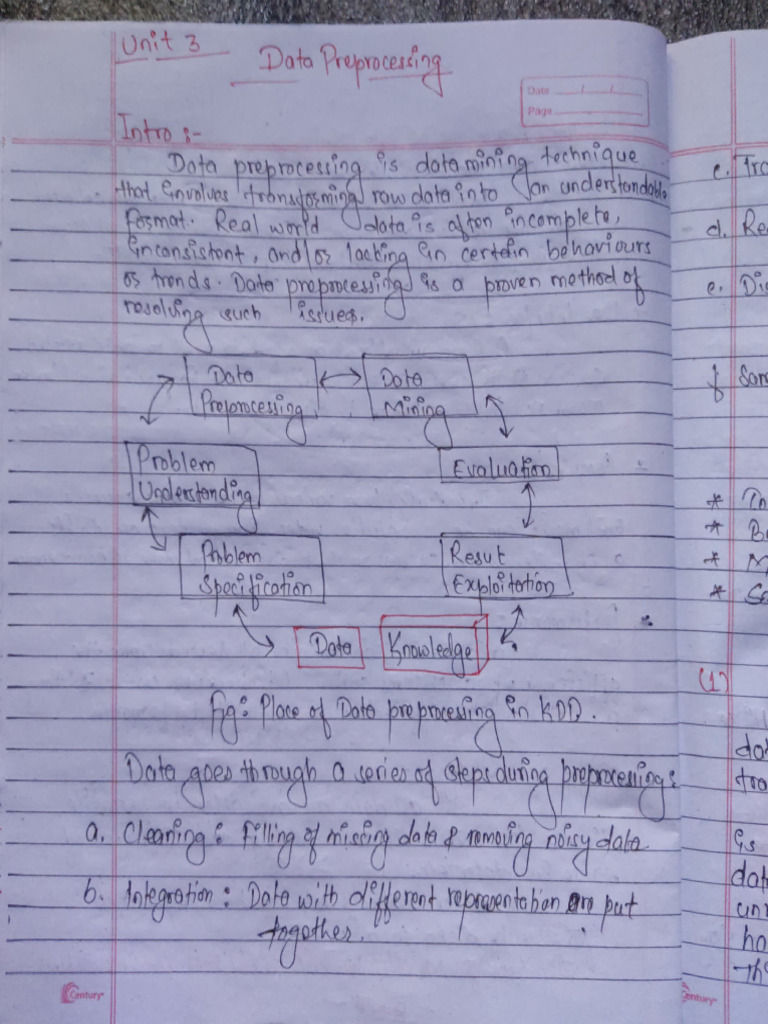 Unit 3
Data Preprocessing
Date
Page
Intro :-
Data preprocessing is data mining technique
that envolves transforming raw data into an understandable
format. Real world data is often incomplete,
inconsistent, and/or lacking in certain behaviours
or trends. Data preprocessing is a proven method of
resolving such issues.
Data Preprocessing
Data Mining
Problem Understanding
Evaluation
Problem Specification
Result Exploitation
Data
Knowledge
Fig: Place of Data preprocessing in KDD.
Data goes through a series of steps during preprocessing:
a. Cleaning : Filling of missing data & removing noisy data
b. Integration : Data with different representation are put
together.
Century
e.
d. Re
e. Dis
f
*
*
*
*
(1)
is
Century